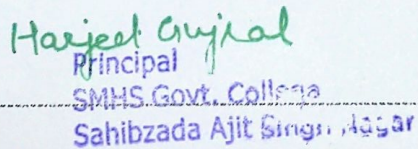 Harjeet Gujral
Principal
SMHS.Govt. College
Sahibzada Ajit Singh Nagar